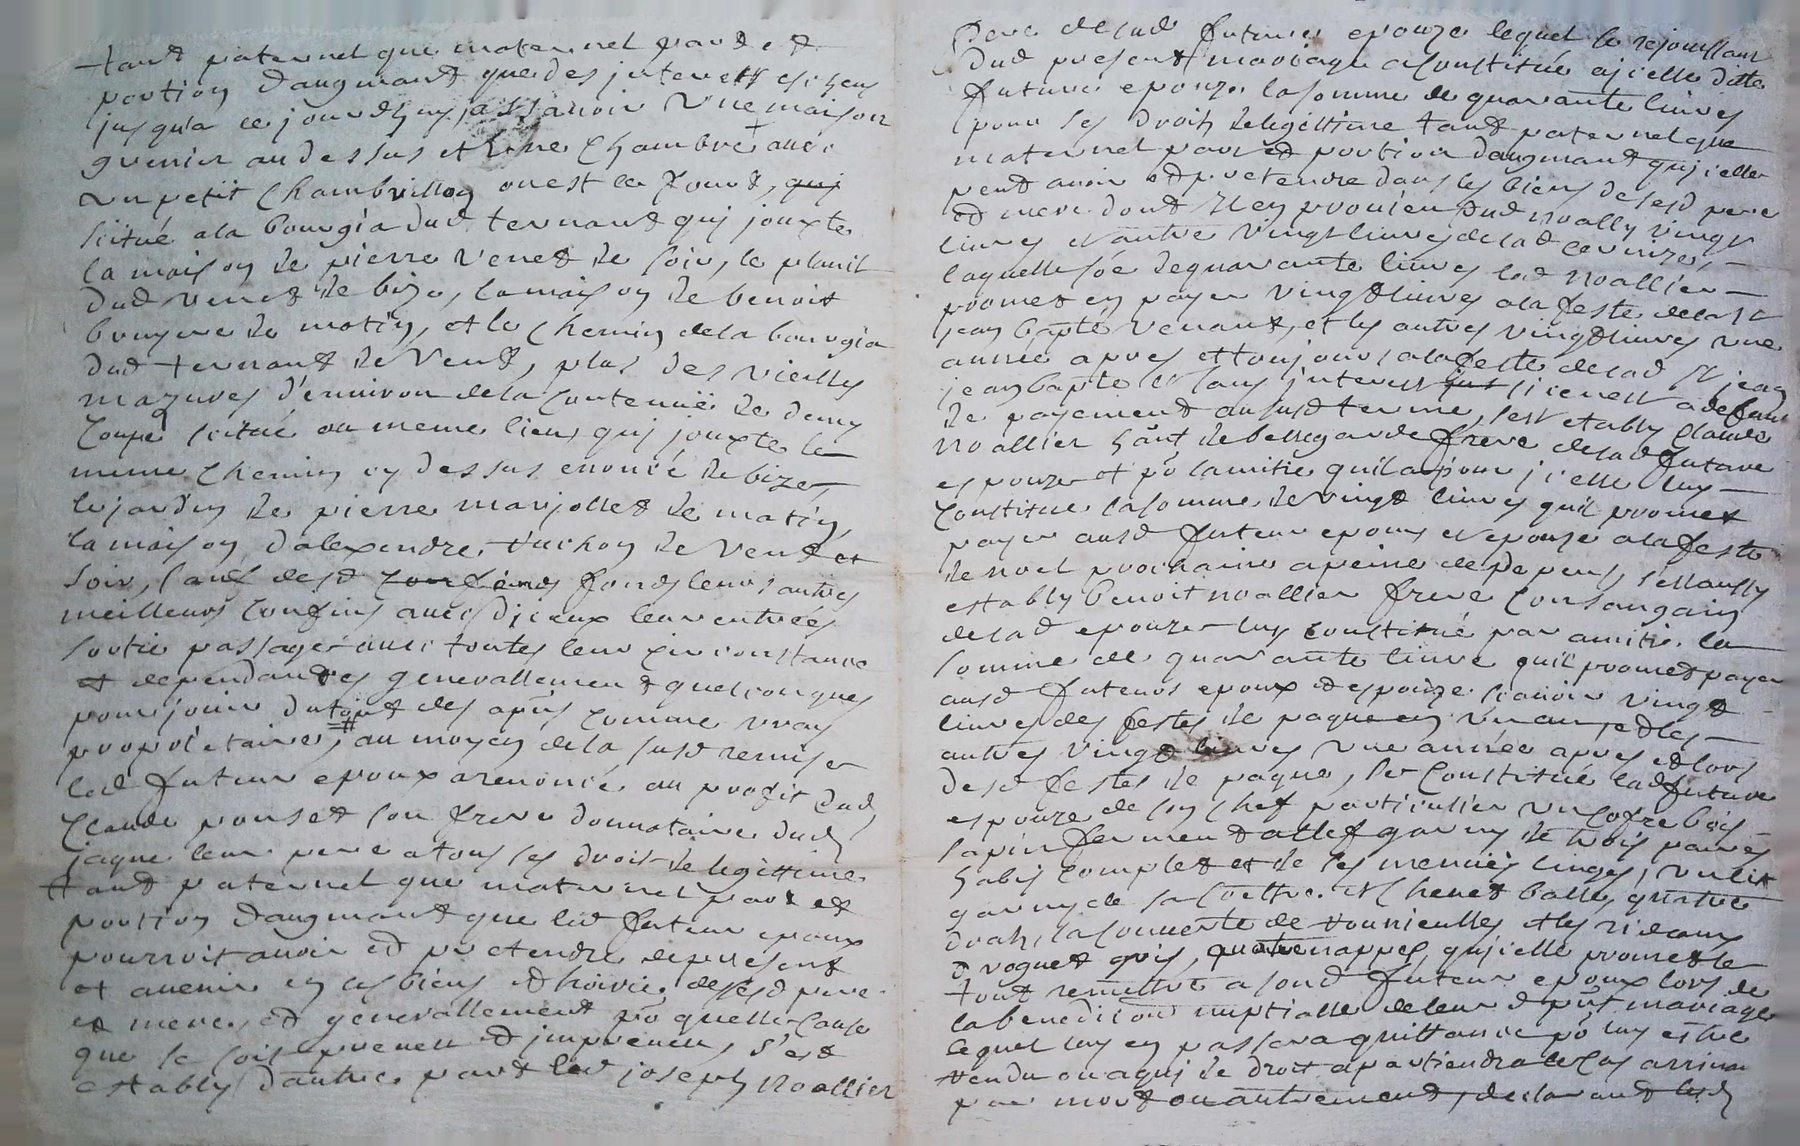 tant paternel que maternel part et
portion daugmant que des jnterests esheus
jusqua ce jourdhuy, a sçauoir vne maison
grenier au dessus et vne chambre auec
vn petit chambrillon ou est le fourt, quj
scitué a la bourgia dud ternant quj jouxte
la maison de pierre venet de soir, le planit
dud venet de bize, la maison de benoit
bruyere de matin, et le chemin de la bourgia
dud ternant de vent, plus des vieilles
mazures d'enuiron de la contenüe de demy
coupe scitué au meme lieu quj jouxte le
meme chemin cy dessus enoncé de bize,
le jardin de pierre marjollet de matin
la maison dalexendre tuchon de vent et
soir, sauf desd confins fonds leurs autres
meilleurs confins auec djceux leur entrées
sortie passage auec toutes leur circonstance
et dependantes generallement quelconques
pour jouir du tout des apñs comme vray
propriétaire, au moyen de la susd remise
led futeur epoux a renoncé au profit dud
Claude ponset son frere donnataire dud
jaque leur pere a tous ses droit de legittime
tant paternel que maternel part et
portion daugmant que led futeur epoux
pourroit auoir et pretendre de present
et auenir en les biens et hoirie de sesd pere
et mere, et generallement po quelle cause
que se soit preueu et jmpreueu, s'est
estably d'autre part led joseph noallier
Pere de lad future epouze lequel se rejouissant
dud present mariage a constitué a jcelle ditte
future epouze la somme de quarante liures
pour ses droits de legittime tant paternel que
maternel part et portion daugmant quj celle
peut auoir et pretendre dans les biens de sesd pere
et mere dont Il en prouien dud noally vingt
liures et autre vingt liures de lad cerizé,
laquelle soe de quarante liures led noallier
promet en payer vingt liures a la feste de la st
jean bapte venant, et les autres vingt liures vne
année apres et toujours a la feste de lad st jean
jean bapte et sans jnterest si ce nest a defaut
de payement au susd terme, sest estably Claude
noallier hant de bellegarde frere de lad future
espouze et po lamitie quil a pour jcelle luy
constitue la somme de vingt liures quil promet
payer ausd futeur epoux et epouze a la feste
de noel prochaine a peine de depens, s'est aussy
estably benoit noallier frere consanguin
de lad epouze luy constitué par amitie la
somme de quarante liure quil promet payer
ausd futeurs epoux et espouze scauoir vingt
liures des festes de paque en vn an, et les
autres vingt liures vne année apres et lors
desd festes de paque, se constitue lad future
espouze de son chef particulier vn cofre bois
sapin ferment a clef garny de trois paires
habis complet et de ses menües linges, vn lit
garny de sa coettre et cheuet balle, quatre
drah, la couuerte de tournielles et les rideaux
droguet gris, quatre nappes, quj celle promet le
tout remettre a sond futeur epoux lors de
la benediction nuptialle de leur d pnt mariage
lequel luy en passera quittance po luy estre
rendu ou a quj de droit apartiendra le cas arriuant
par mort ou autrement, declarant lesd